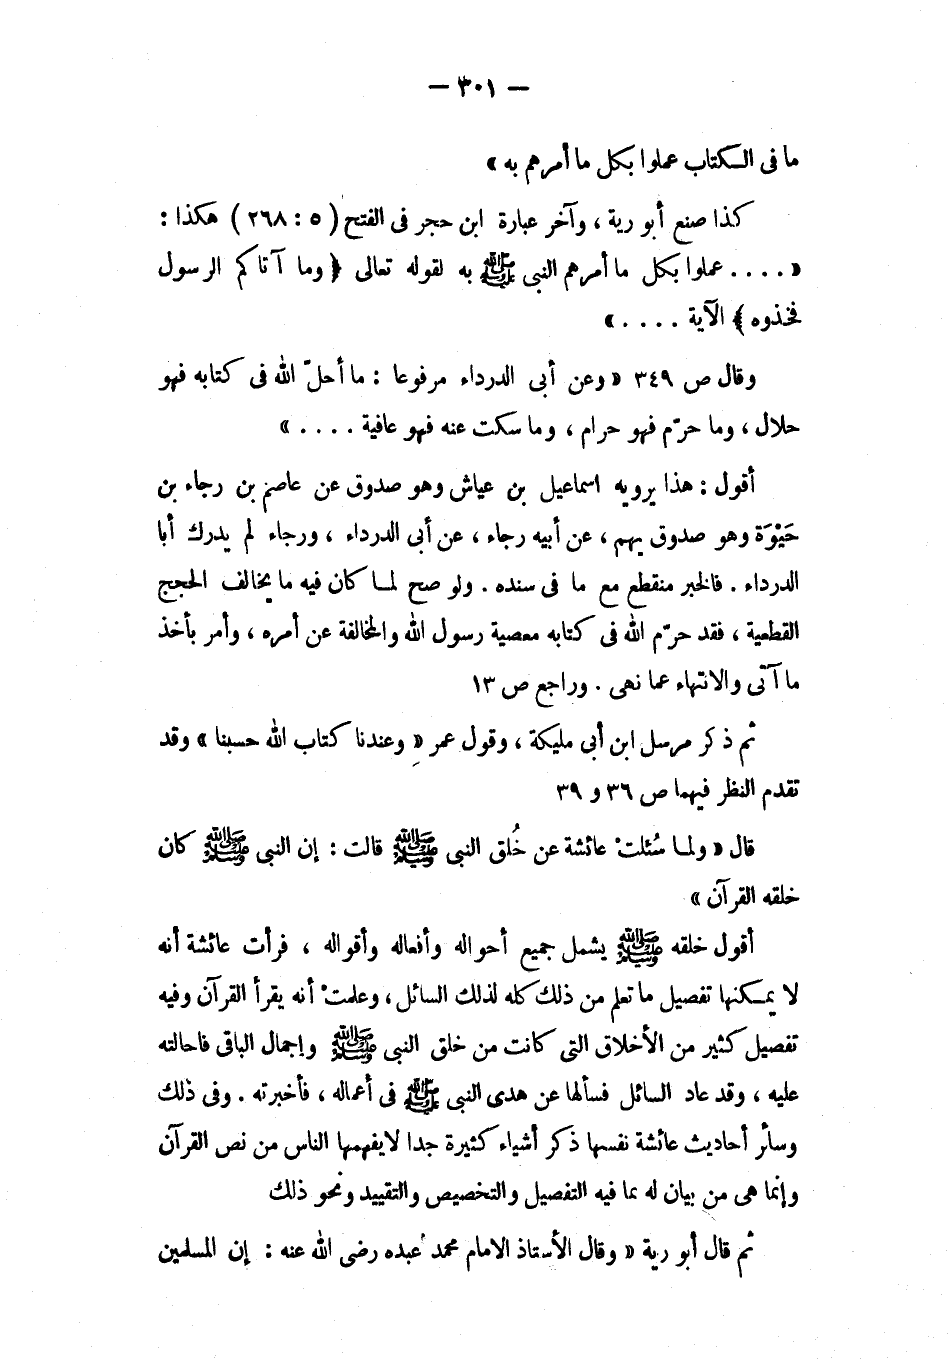 — ٣٠١ —
ما فى الكتاب عملوا بكل ما أمرهم به »
كذا صنع أبو رية ، وآخر عبارة ابن حجر فى الفتح ( ٥ : ٢٦٨ ) هكذا :
« .... عملوا بكل ما أمرهم النبى ﷺ به لقوله تعالى ﴿ وما آتاكم الرسول
فخذوه ﴾ الآية .... »
وقال ص ٣٤٩ « وعن أبى الدرداء مرفوعا : ما أحلّ الله فى كتابه فهو
حلال ، وما حرّم فهو حرام ، وما سكت عنه فهو عافية .... »
أقول : هذا يرويه اسماعيل بن عياش وهو صدوق عن عاصم بن رجاء بن
حَيْوَة وهو صدوق يهم ، عن أبيه رجاء ، عن أبى الدرداء ، ورجاء لم يدرك أبا
الدرداء . فالخبر منقطع مع ما فى سنده . ولو صح لما كان فيه ما يخالف الحجج
القطعية ، فقد حرّم الله فى كتابه معصية رسول الله والمخالفة عن أمره ، وأمر بأخذ
ما آتى والانتهاء عما نهى . وراجع ص ١٣
ثم ذكر مرسل ابن أبى مليكة ، وقول عمر « وعندنا كتاب الله حسبنا » وقد
تقدم النظر فيهما ص ٣٦ و ٣٩
قال « ولما سُئلتْ عائشة عن خُلق النبى ﷺ قالت : إن النبى ﷺ كان
خلقه القرآن »
أقول خلقه ﷺ يشمل جميع أحواله وأفعاله وأقواله ، فرأت عائشة أنه
لا يمكنها تفصيل ما تعلم من ذلك كله لذلك السائل ، وعلمتْ أنه يقرأ القرآن وفيه
تفصيل كثير من الأخلاق التى كانت من خلق النبى ﷺ وإجمال الباقى فاحالته
عليه ، وقد عاد السائل فسألها عن هدى النبى ﷺ فى أعماله ، فأخبرته . وفى ذلك
وسائر أحاديث عائشة نفسها ذكر أشياء كثيرة جدا لايفهمها الناس من نص القرآن
وإنما هى من بيان له بما فيه التفصيل والتخصيص والتقييد ونحو ذلك
ثم قال أبو رية « وقال الأستاذ الامام محمد عبده رضى الله عنه : إن المسلمين